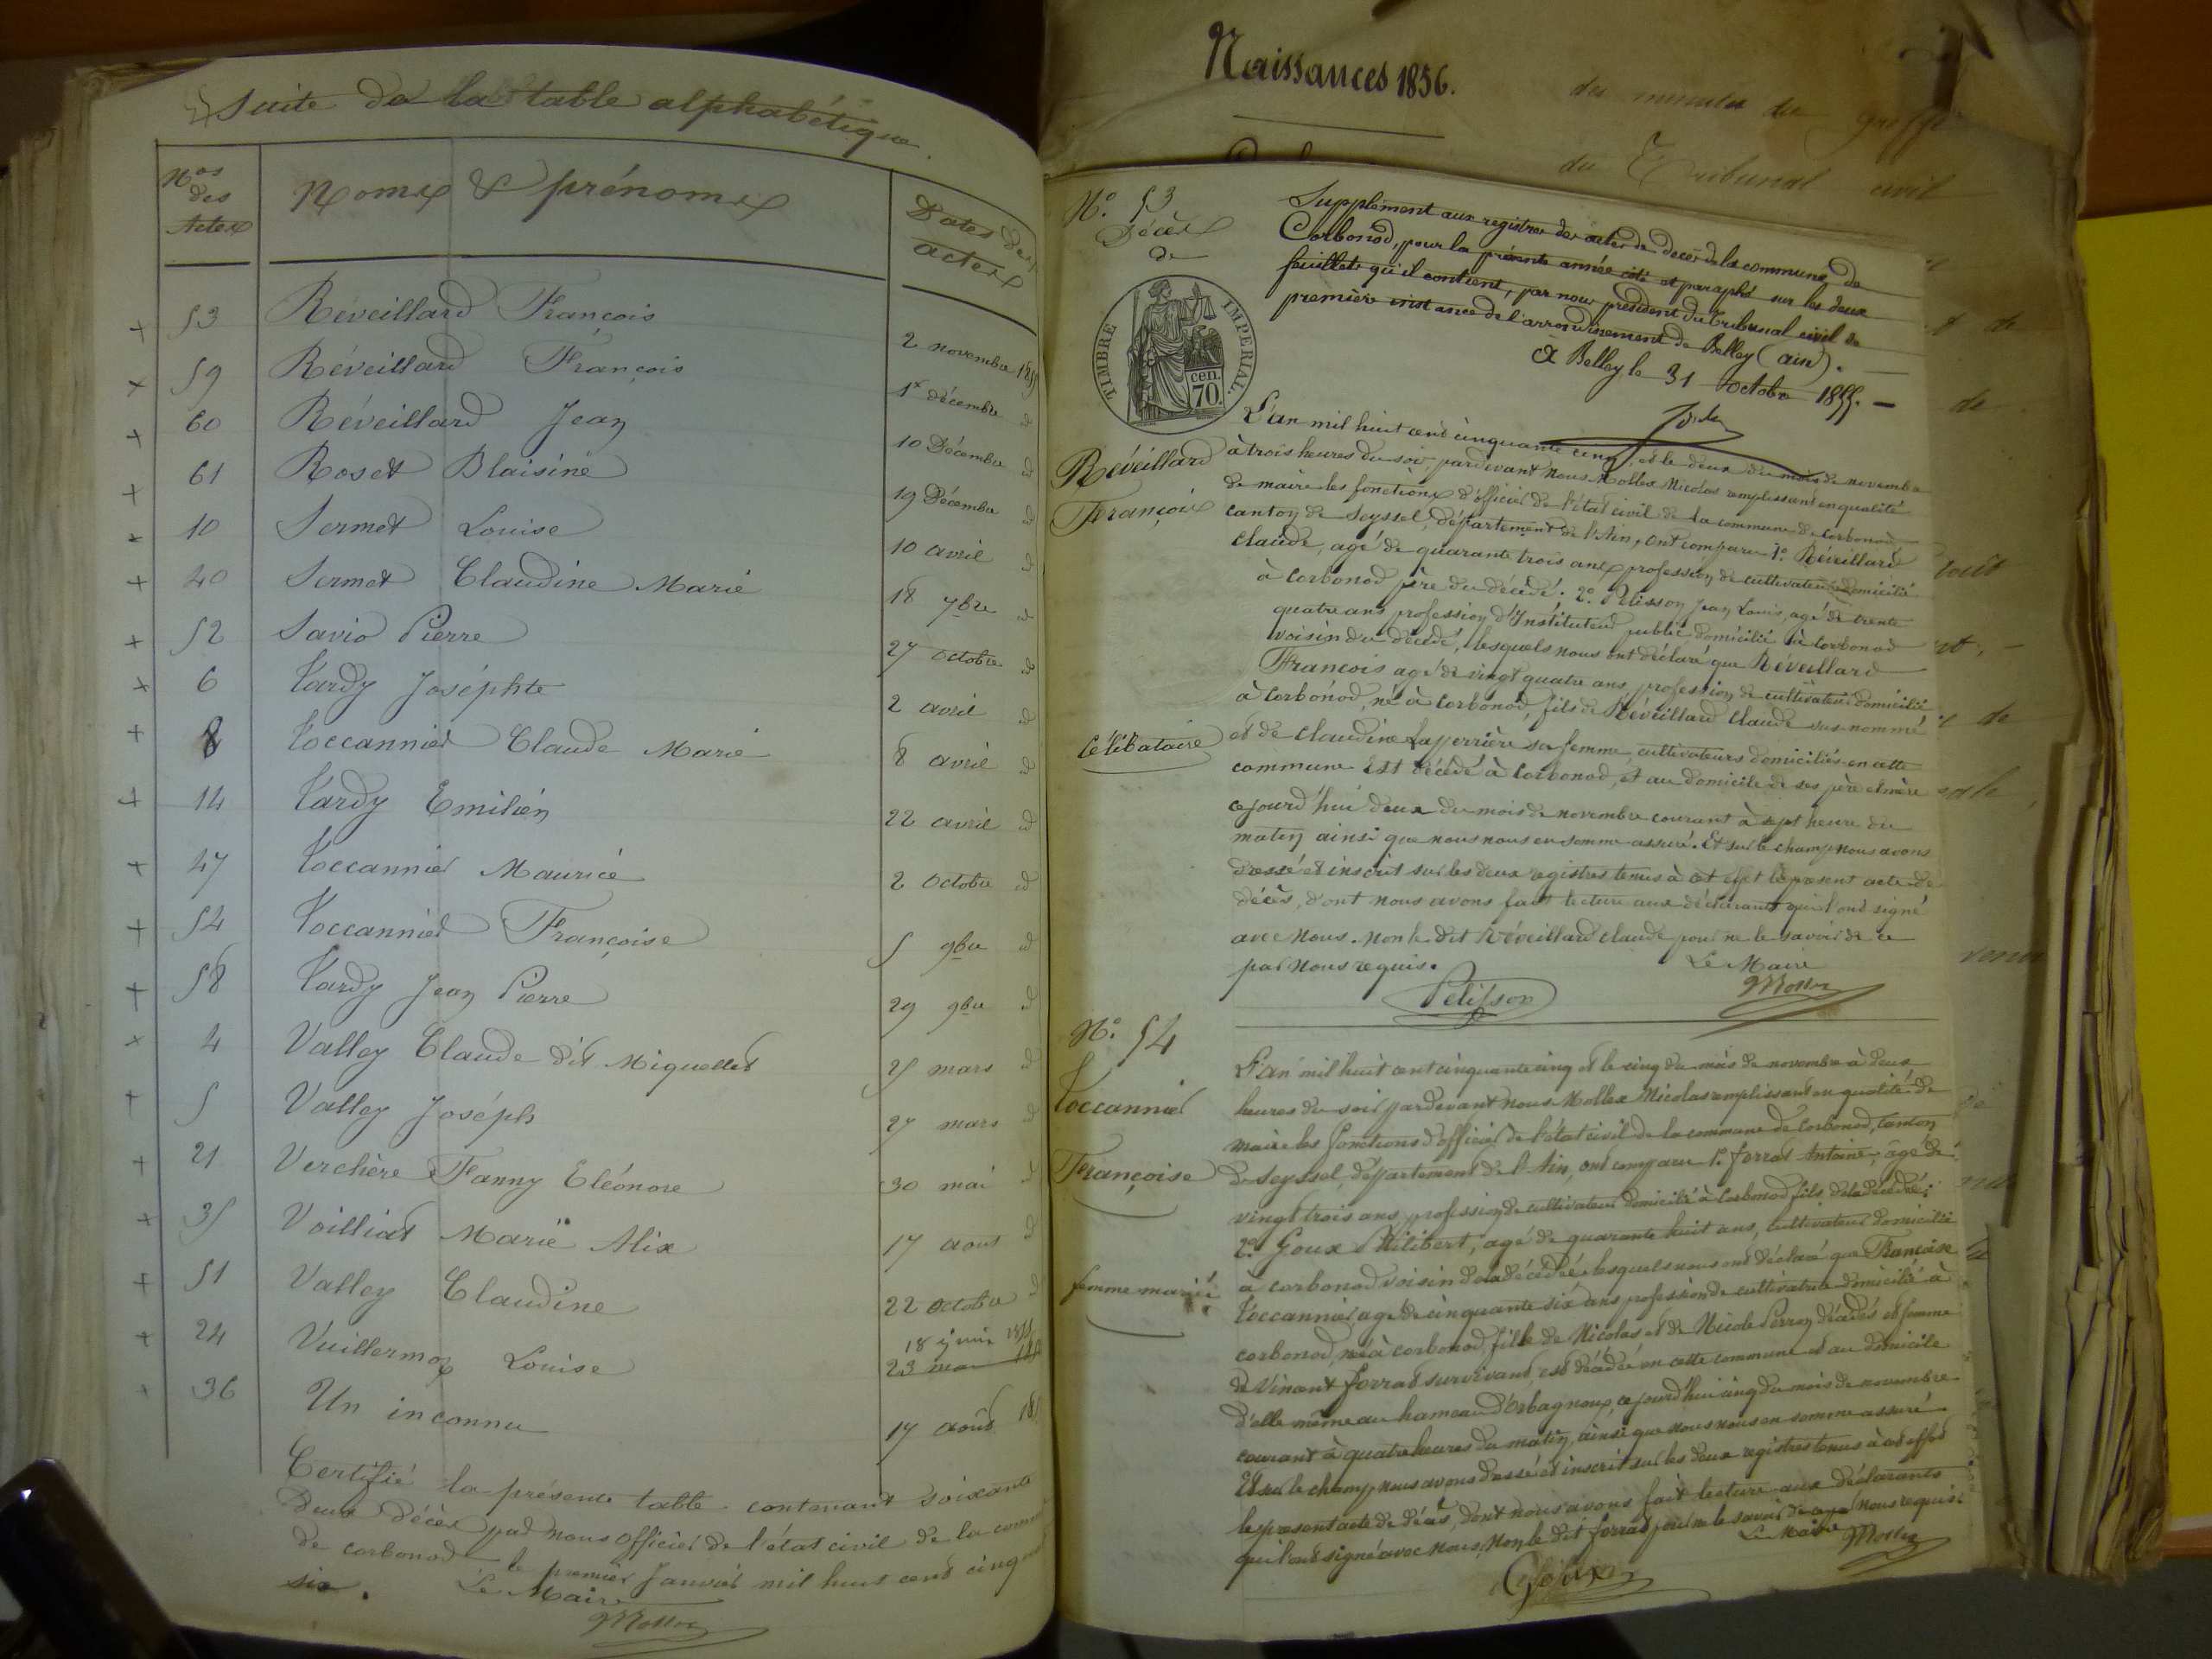 Suite de la table alphabétique.
Nos des Actes
Noms & prénoms
Dates des actes
+ 53 Réveillard François 2 novembre 1855
+ 59 Réveillard François 1er décembre d
+ 60 Réveillard Jean 10 Décembre d
+ 61 Roset Blaisine 19 Décembre d
+ 10 Sermet Louise 10 avril d
+ 40 Sermet Claudine Marie 18 7bre d
+ 52 Savio Pierre 27 octobre d
+ 6 Tardy Joséphte 2 avril d
+ 8 Toccannier Claude Marie 8 avril d
+ 14 Tardy Emilién 22 avril d
+ 47 Toccannier Maurice 2 Octobre d
+ 54 Toccannier Françoise 5 9bre d
+ 58 Tardy Jean Pierre 29 9bre d
+ 4 Valley Claude dit Miquellet 25 mars d
+ 5 Valley Joséph 27 mars d
+ 21 Verchère Fanny Eléonore 30 mai d
+ 35 Voilliat Marie Alix 17 aout d
+ 51 Valley Claudine 22 octobre d
+ 24 Vuillermoz Louise 18 juin 1855
23 mai
+ 36 Un inconnu 17 août
Certifié la présente table contenant soixante
deux décès par nous officier de l'état civil de la
de corbonod le premier Janvier mil huit cent cinq
six.
Le Maire
Mollex
Naissances 1856.
des minutes du greffe
du Tribunal civil
N° 53
Décès
de
TIMBRE IMPERIAL
cen.
70.
Réveillard
François
célibataire
Supplément aux registres des actes de décès de la commune de
Corbonod, pour la présente année coté et paraphé sur les deux
feuillets qu'il contient, par nous président du tribunal civil de
première instance de l'arrondissement de Belley (ain).
à Belley le 31 octobre 1855. —
L'an mil huit cent cinquante cinq, et le deux du mois de novembre
à trois heures du soir, pardevant nous Mollex Nicolas remplissant en qualité
de maire les fonctions d'officier de l'état civil de la commune de Corbonod
canton de Seyssel, département de l'Ain, ont comparu 1°. Réveillard
claude, agé de quarante trois ans profession de cultivateur domicilié
à Corbonod père du décédé. 2°. Pélisson Jean Louis, agé de trente
quatre ans profession d'Instituteur public domicilié à Corbonod
voisin du décédé, lesquels nous ont déclaré que Réveillard
François agé de vingt quatre ans profession de cultivateur domicilié
à Corbonod, né à Corbonod, fils de Réveillard Claude sus-nommé
et de Claudine Laperrière sa femme, cultivateurs domiciliés en cette
commune Est décédé à Corbonod, et au domicile de ses père et mère
cejourd'hui deux du mois de novembre courant à sept heure du
matin ainsi que nous nous en somme assuré. Et sur le champ nous avons
dressé et inscrit sur les deux registres tenus à cet effet le présent acte de
décès, dont nous avons fait lecture aux déclarants qui l'ont signé
avec nous. Non le dit Réveillard claude pour ne le savoir de ce
par nous requis.
Le Maire
Pelisson
Mollex
N° 54
Toccannier
Françoise
femme mariée
L'an mil huit cent cinquante cinq et le cinq du mois de novembre à deux
heures du soir pardevant nous Mollex Nicolas remplissant en qualité de
maire les fonctions d'officier de l'état civil de la commune de Corbonod, canton
de Seyssel, département de l'Ain, ont comparu 1°. forrat Antoine, âgé de
vingt trois ans profession de cultivateur domicilié à Corbonod fils de la décédée;
2°. Goux Philibert, agé de quarante huit ans, cultivateur domicilié
à corbonod voisin de la décédée, lesquels nous ont déclaré que Françoise
Toccannier agé de cinquante six ans profession de cultivatrice domicilié à
corbonod, né à corbonod, fille de Nicolas et de Nicole Perroy décédés et femme
de Vincent forrat survivant, est décédée en cette commune et au domicile
d'elle même au hameau d'Orbagnoux, cejourd'hui cinq du mois de novembre
courant à quatre heures du matin, ainsi que nous nous en somme assuré.
Et sur le champ nous avons dressé et inscrit sur les deux registres tenus à cet effet
le présent acte de décès, dont nous avons fait lecture aux déclarants
qui l'ont signé avec nous, Non le dit forrat pour ne le savoir de ce par nous requis.
Le Maire
Mollex
Goux